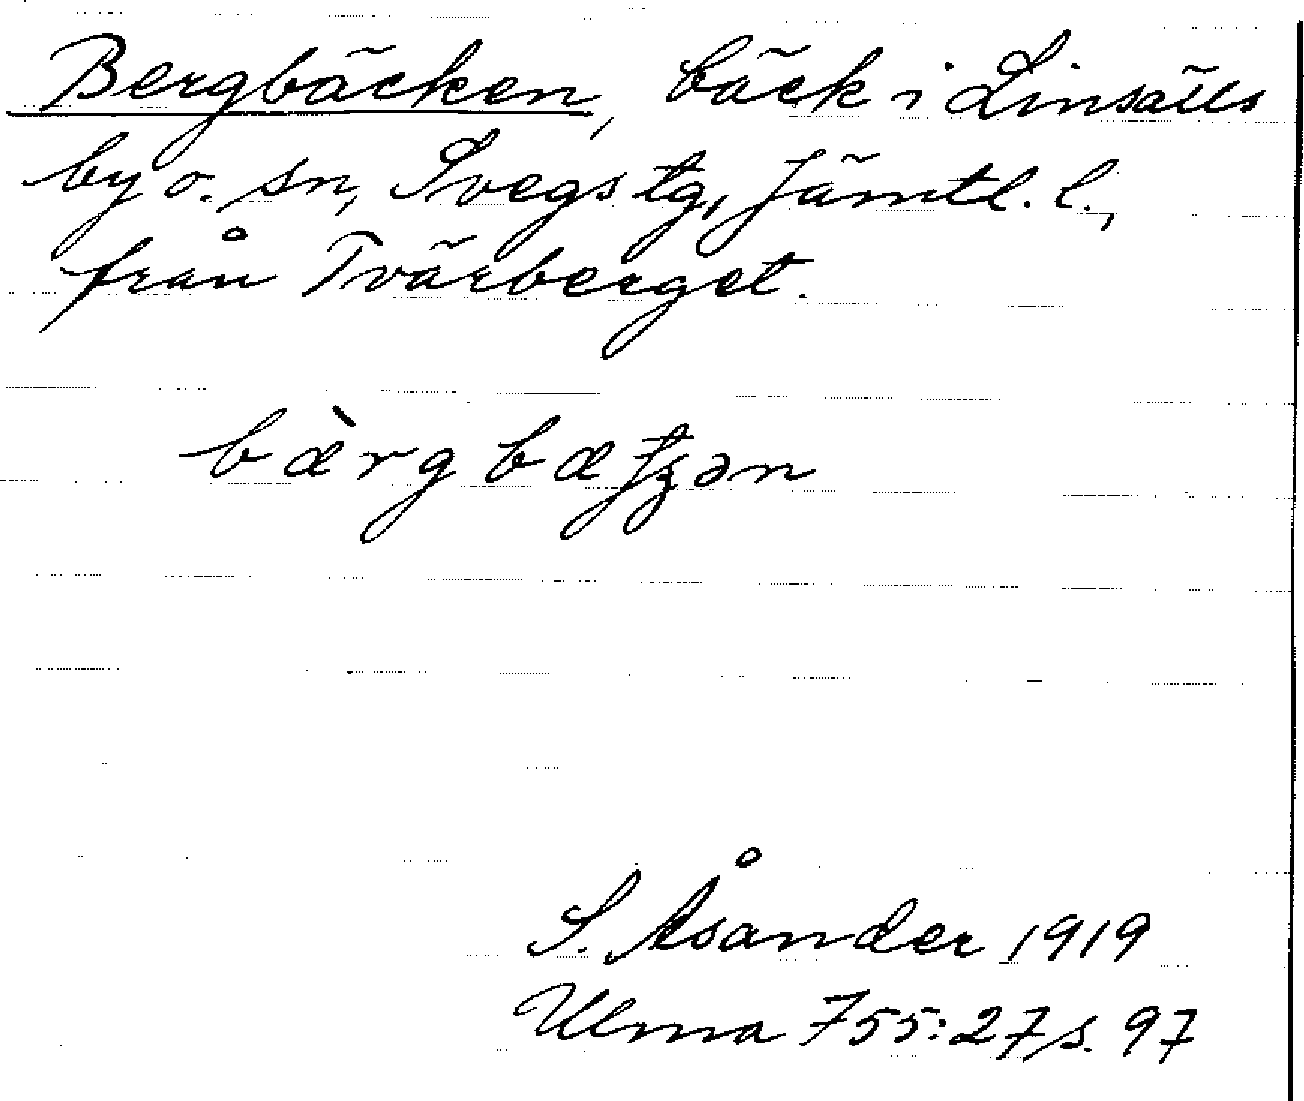 Bergbäcken, bäck i Linsälls
by o. sn, Svegs tg, Jämtl. l.,
från Tvärberget.
bæ̀rgbætʒən
S. Åsander 1919
Ulma 755:27 s. 97